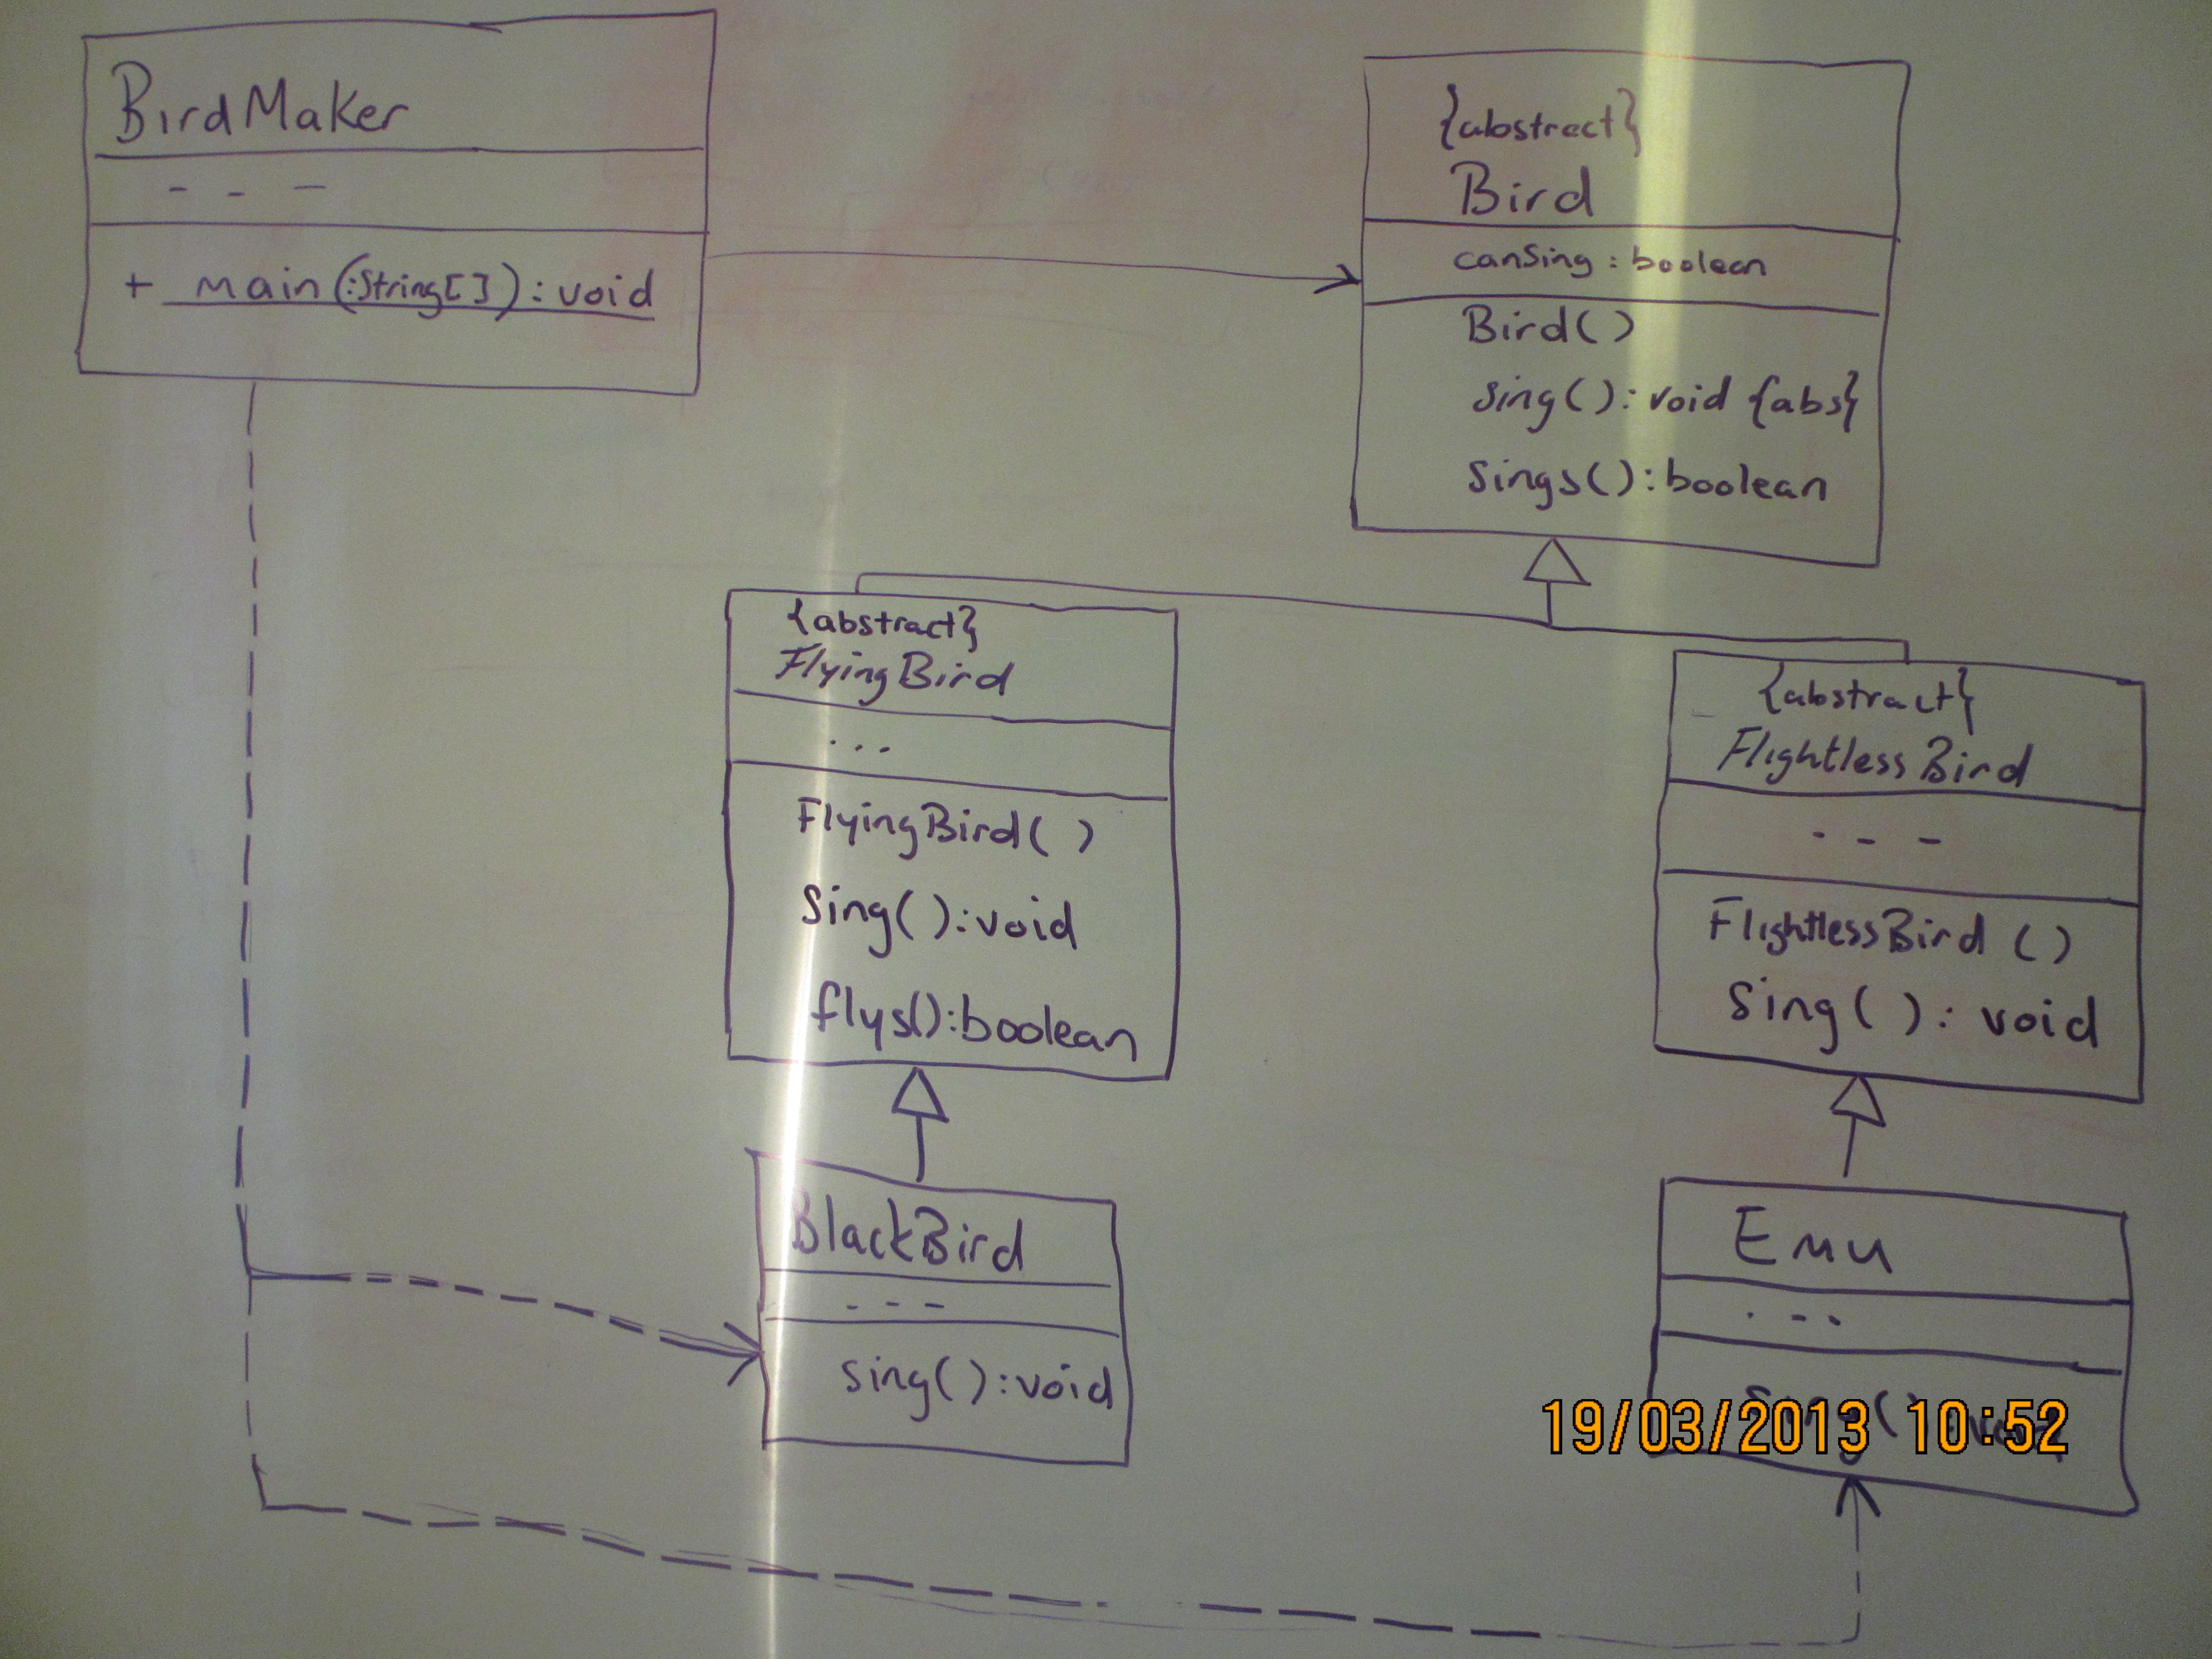 BirdMaker
- - -
+ main(:String[]):void
{abstract}
Bird
canSing : boolean
Bird()
sing(): void {abs}
sings():boolean
{abstract}
FlyingBird
...
FlyingBird( )
Sing():void
flys():boolean
{abstract}
FlightlessBird
- - -
FlightlessBird ()
Sing( ): void
BlackBird
- - -
sing():void
Emu
- - -
19/03/2013 10:52